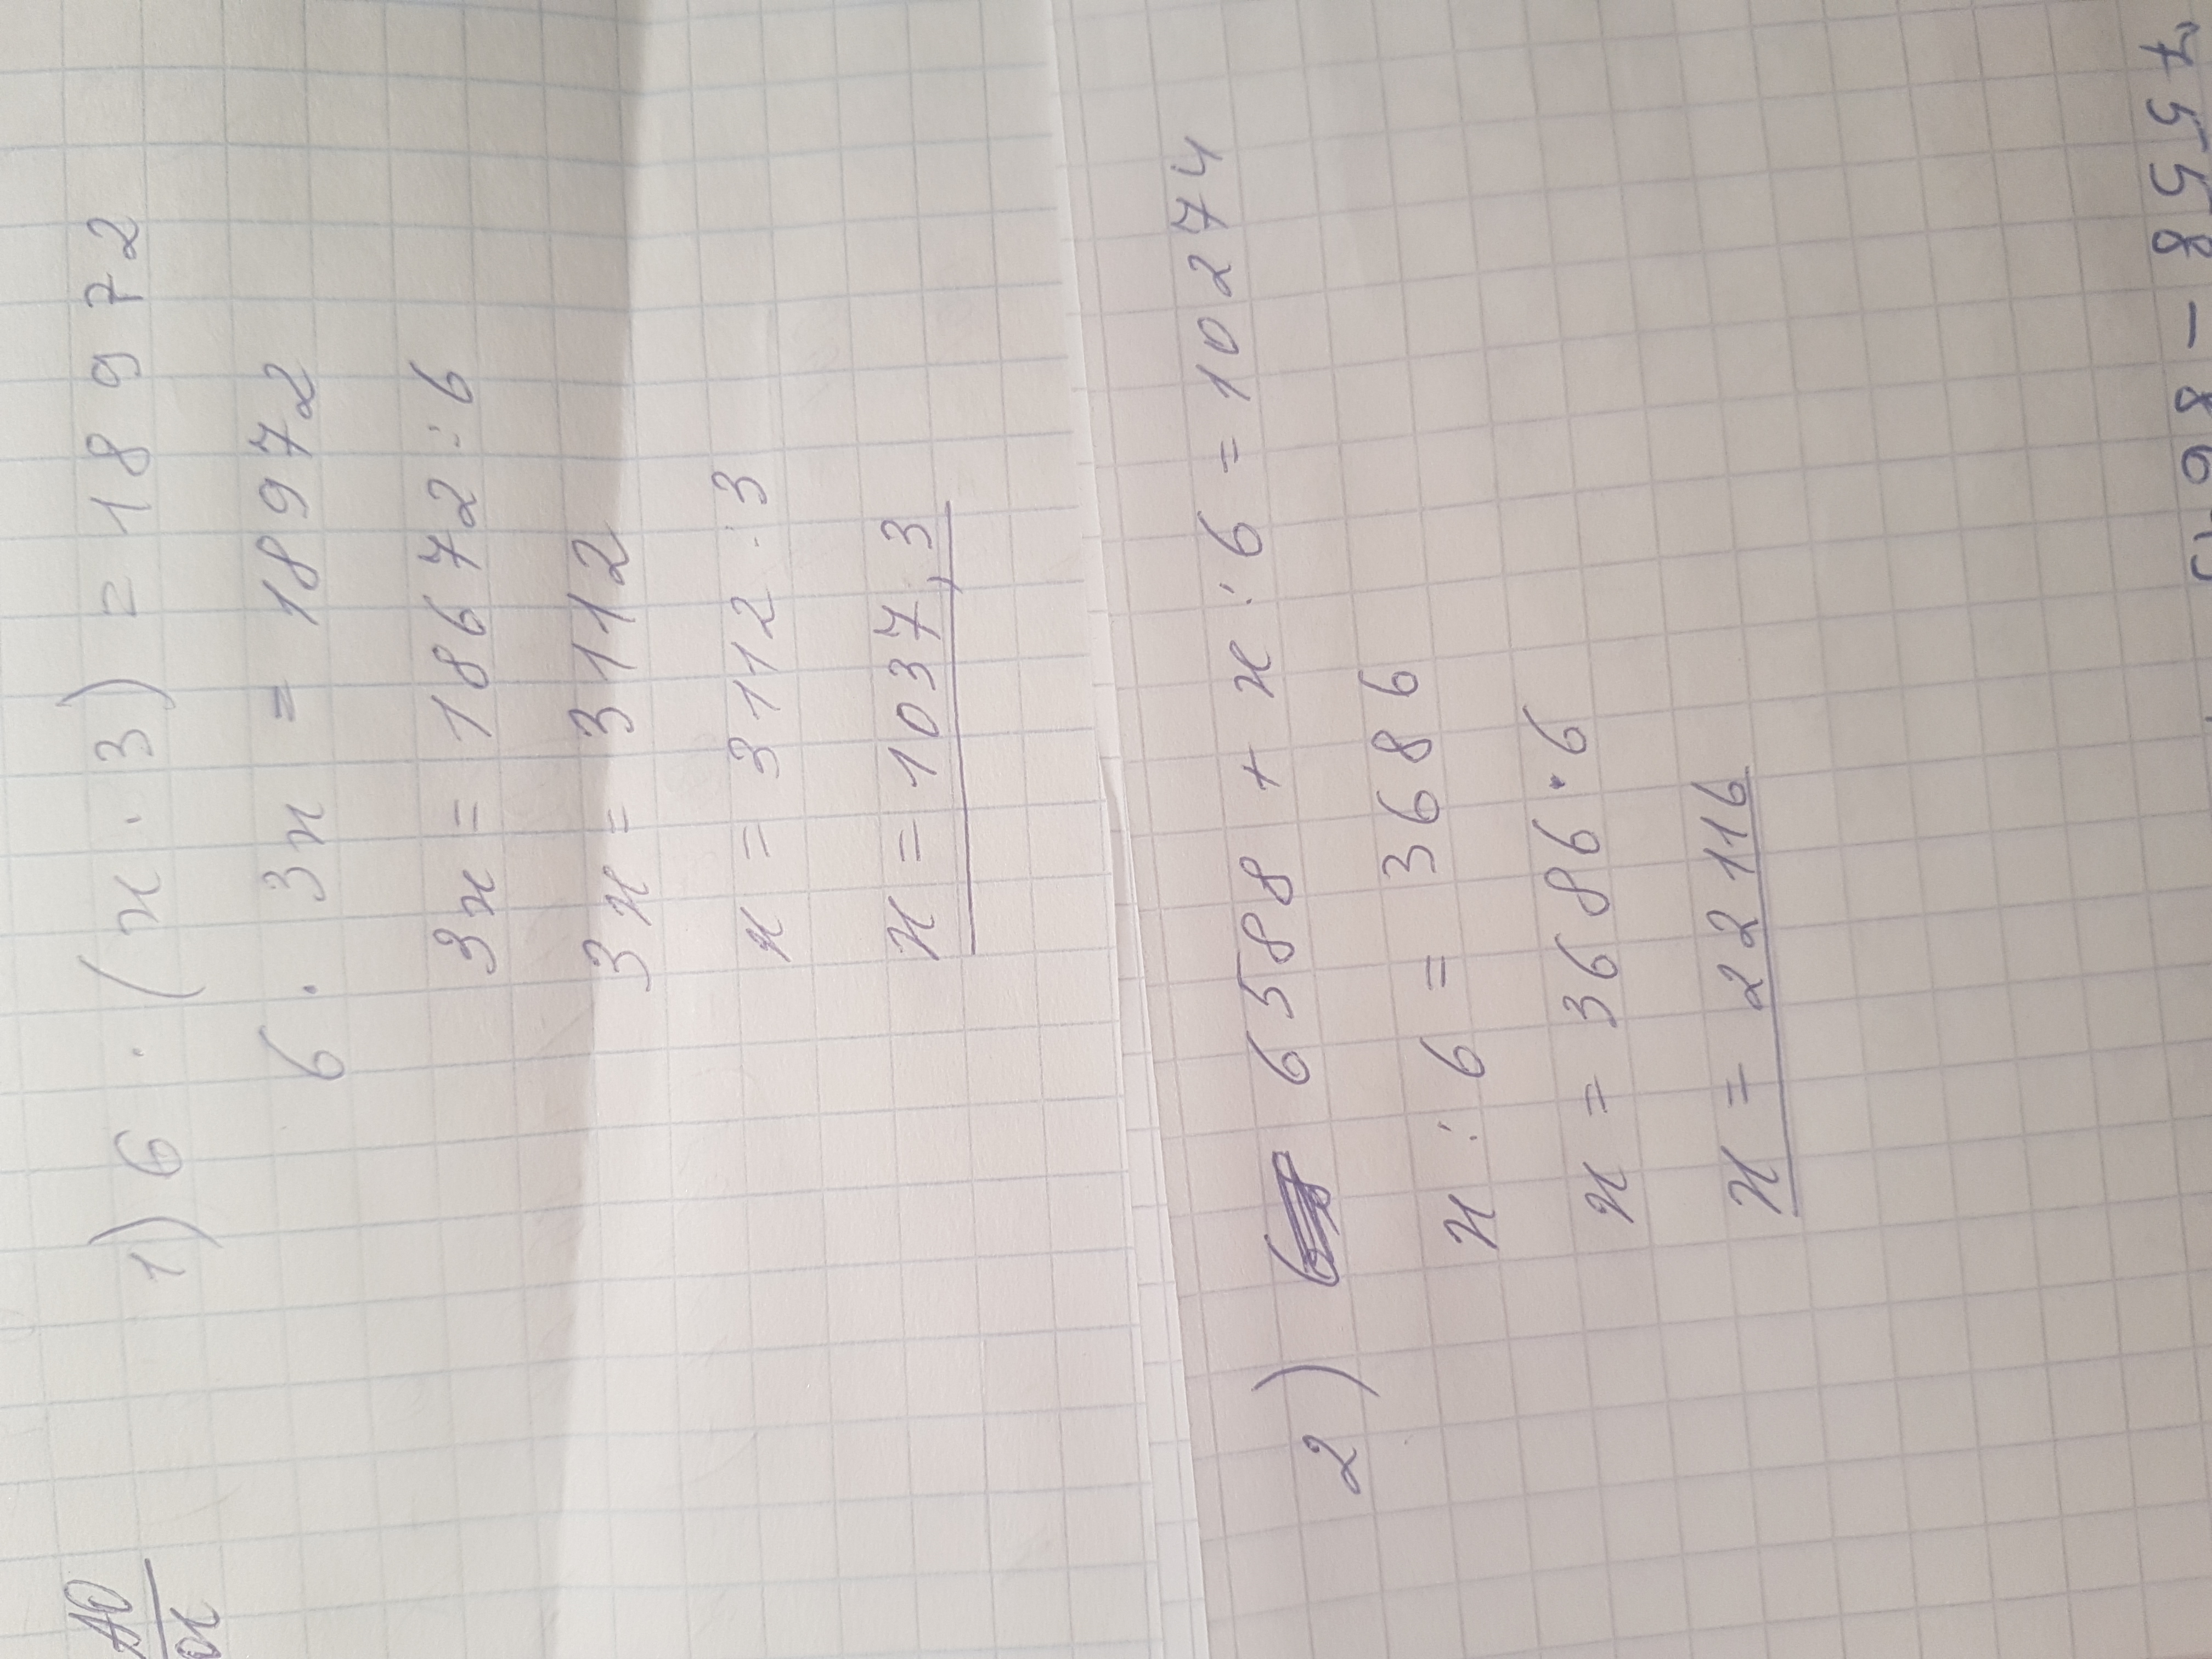 1) 6 · (x · 3) = 18972
6 · 3x = 18972
3x = 18672 : 6
3x = 3112
x = 3112 : 3
x = 1037,3
2) 6588 + x : 6 = 10274
x : 6 = 3686
x = 3686 · 6
x = 22116